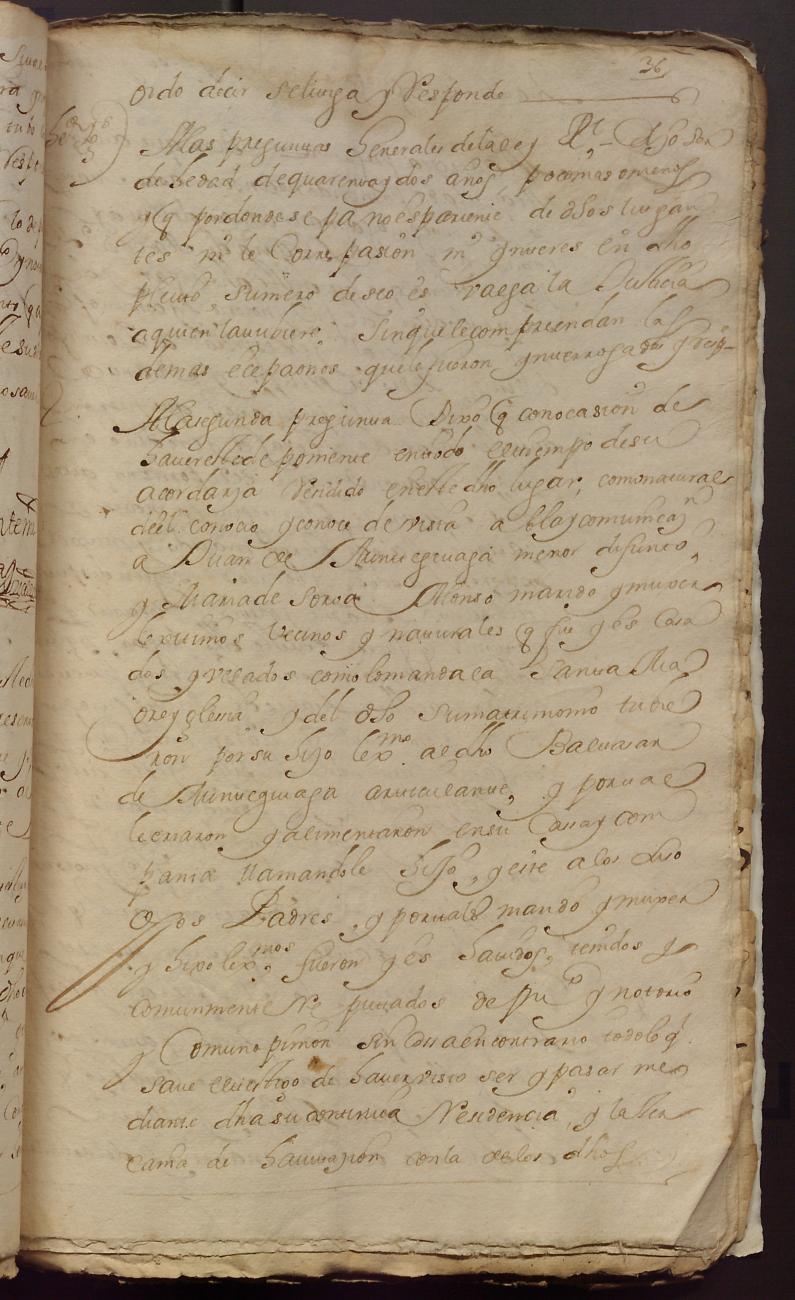 36
oido decir se litiga y Responde
A las preguntas Generales de la ley Dixo ser
de hedad de quarenta y dos años poco mas o menos
y q por donde se pa no es pariente de dhos litigan
tes ni le Corre pasion ni ynteres en dho
pleito, su mero deseo es valga la Justicia
a quien la tubiere, sin que le comprendan las
demas ecepciones que le fueron ynterrogadas y resp
A la segunda pregunta Dixo q con ocasion de
haver este deponiente en todo el tiempo de su
acordanza Residido en este dho lugar, como natural
de el conocio y conoce de vista abla y comunicaⁿ
a Juan de Munueguiaga menor difunto,
y Maria de Soroa Alonso marido y muxer
lexitimos Vecinos y naturales q fue y es Casa
dos y velados como lo manda la Santa Ma
dre yglesia y del dho su matrimonio tubie
ron por su hijo lexmo. al dho Baltasar
de Munueguiaga articulante, y por tal
le criaron y alimentaron en su Casa y com
pania llamandole hijo, y este a los dho
dhos Padres, y por tales marido y muxer
y hixo lexmos. fueron y es havidos, tenidos y
comunmente Reputados de puᶜᵒ y notorio
y Comun opinion sin cosa en contrario todo lo q
save el testigo de haver visto ser y pasar me
diante dha su continua Residencia, y la cer
cania de havitazion con la de los dhos